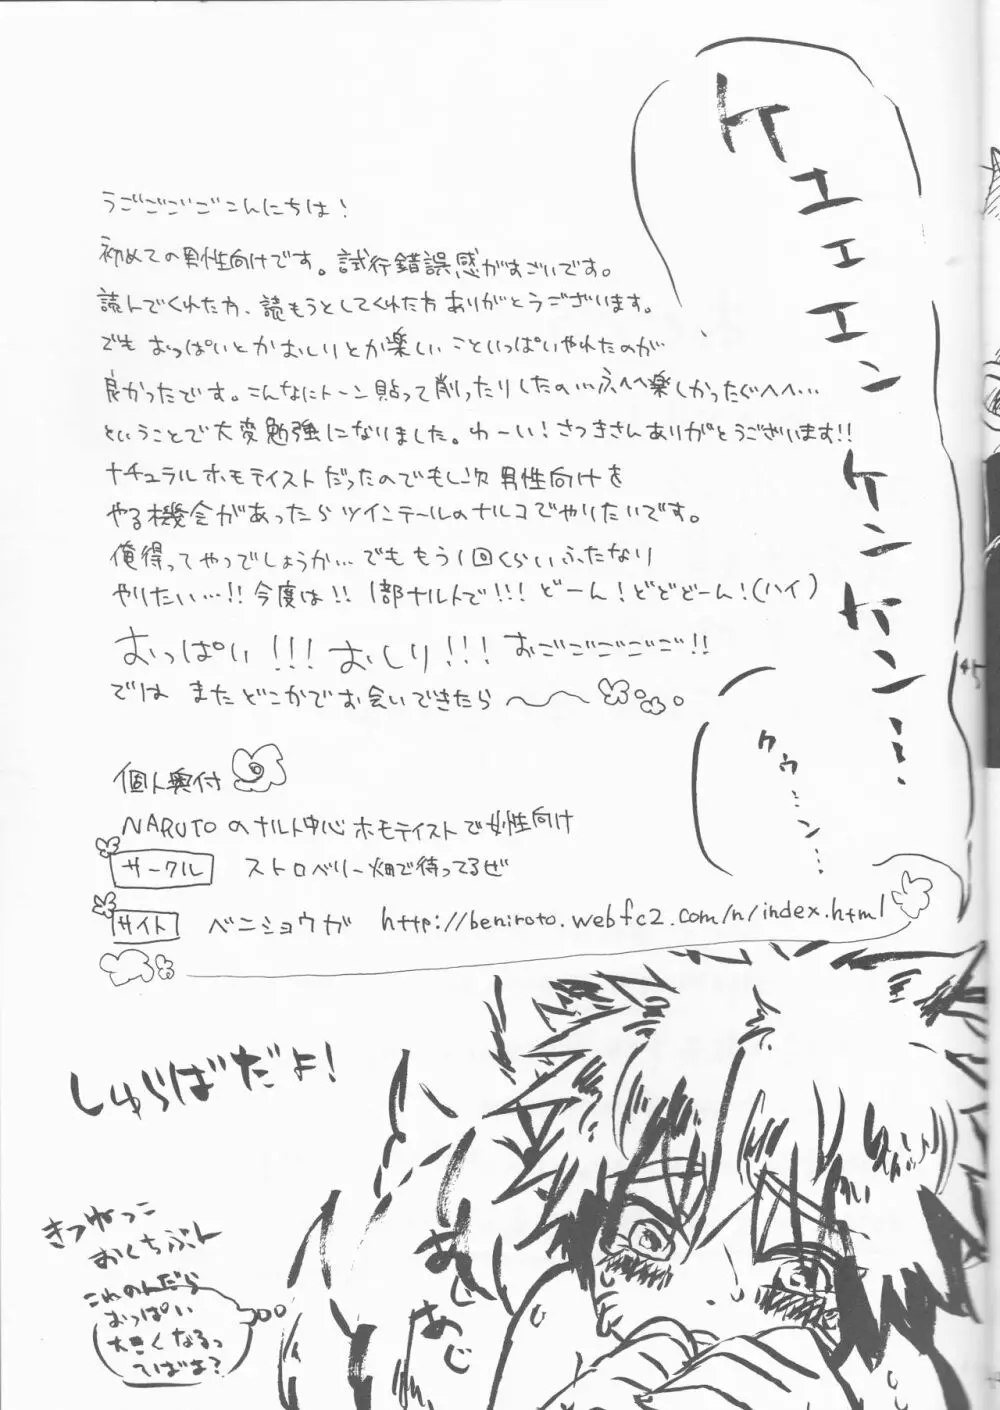 ケエエエンケンケン…
クゥ…ン…
うごごごごこんにちは！
初めての男性向けです。試行錯誤感がすごいです。
読んでくれた方、読もうとしてくれた方ありがとうございます。
でも おっぱいとかおしりとか楽しいこといっぱいやれたのが
良かったです。こんなにトーン貼って削ったりしたの…ふへへ楽しかったぐへへ…
ということで大変勉強になりました。わーい！さつきさんありがとうございます!!
ナチュラルホモテイストだったのでもし次男性向けを
やる機会があったらツインテールのナルコでやりたいです。
俺得ってやつでしょうか…でももう1回くらいふたなり
やりたい…!!今度は!!1部ナルトで!!!どーん！どどどーん！(ハイ)
おっぱい!!!おしり!!!おごごごごご!!
では またどこかでお会いできたら
個人奥付
NARUTOのナルト中心ホモテイストで女性向け
サークル ストロベリー畑で待ってるぜ
サイト ベニショウガ http://beniroto.webfc2.com/n/index.html
しゅらばだよ！
きつねっこ
おくちぶー
これのんだら
おっぱい
大きくなるっ
てばよ？
あじ
あじ
45